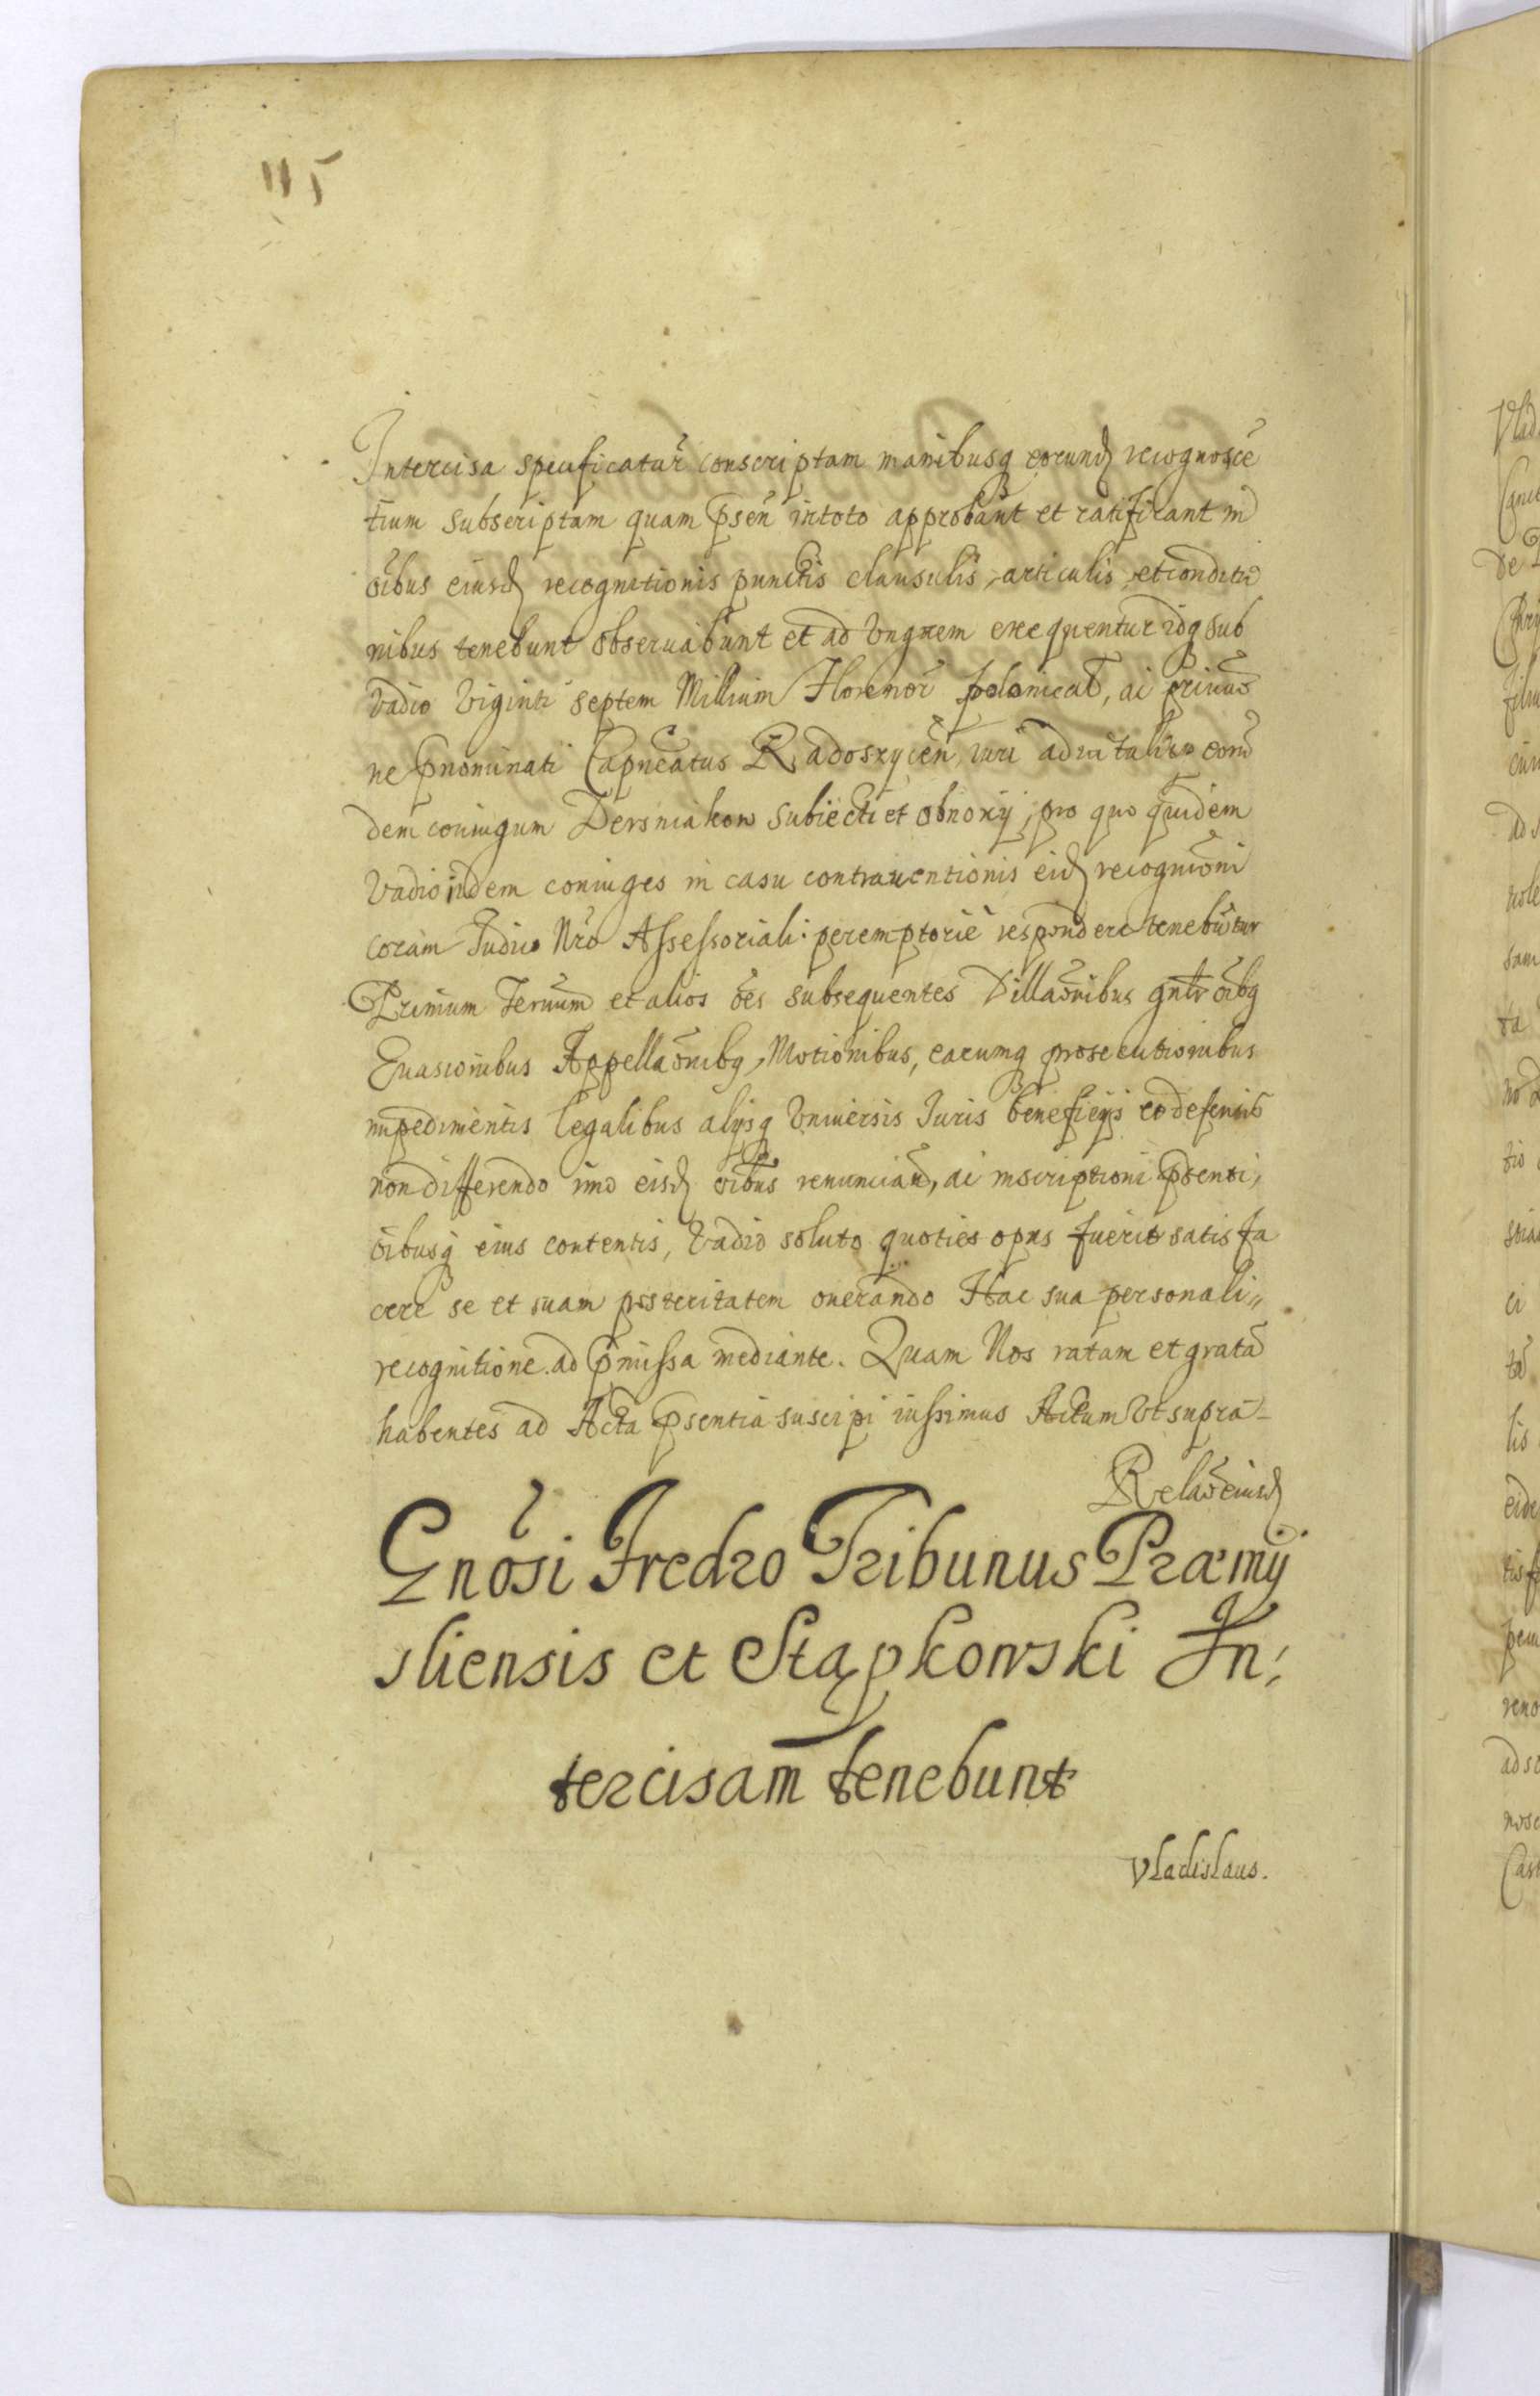 115
Intercisa specificatur̃ conscriptam manibusq eorund recognoscẽ
tium subscriptam quam p̃sen̄ in toto approbant et ratificant in
oĩbus eiusd recognitionis punctis clausulis, articulis, et conditio
nibus tenebunt obseruabunt et ad Vnguem exequentur idq sub
Vadio Viginti septem Millium Florenor̃ polonical, ac
ne p̃nominati Capñeatus Radoszycen̄ iuri aduitali eorũ
dem coniugum Dersniakow subiecti et obnoxij, pro quo quidem
Vadio iidem coniuges in casu contrauentionis eid recognic̃oni
coram Iudicio Nr̃o Assessoriali peremptorie respondere tenebũtur
Primum Terminũ et alios oẽs subsequentes Dillac̃onibus gn̄lr oĩbq
Euasionibus Appellac̃onibq, Motionibus, earumq prosecutionibus
impedimentis legalibus alijsq Vniuersis Iuris beneficijs et defensis
non differendo imo eisd oĩbus renunciand, ac inscriptioni p̃senti,
oĩbusq eius contentis, Vadio soluto quoties opus fuerit satisfa
cere se et suam posteritatem onerando Hac sua personali
recognitione ad p̃missa mediante. Quam Nos ratam et gratã
habentes ad Acta p̃sentia suscipi iussimus Actum Vt supra
Relac̃ eiusd
Gnõsi Fredro Tribunus Præmij
sliensis et Stąpkowski In,
tercisam tenebunt
Vladislaus.